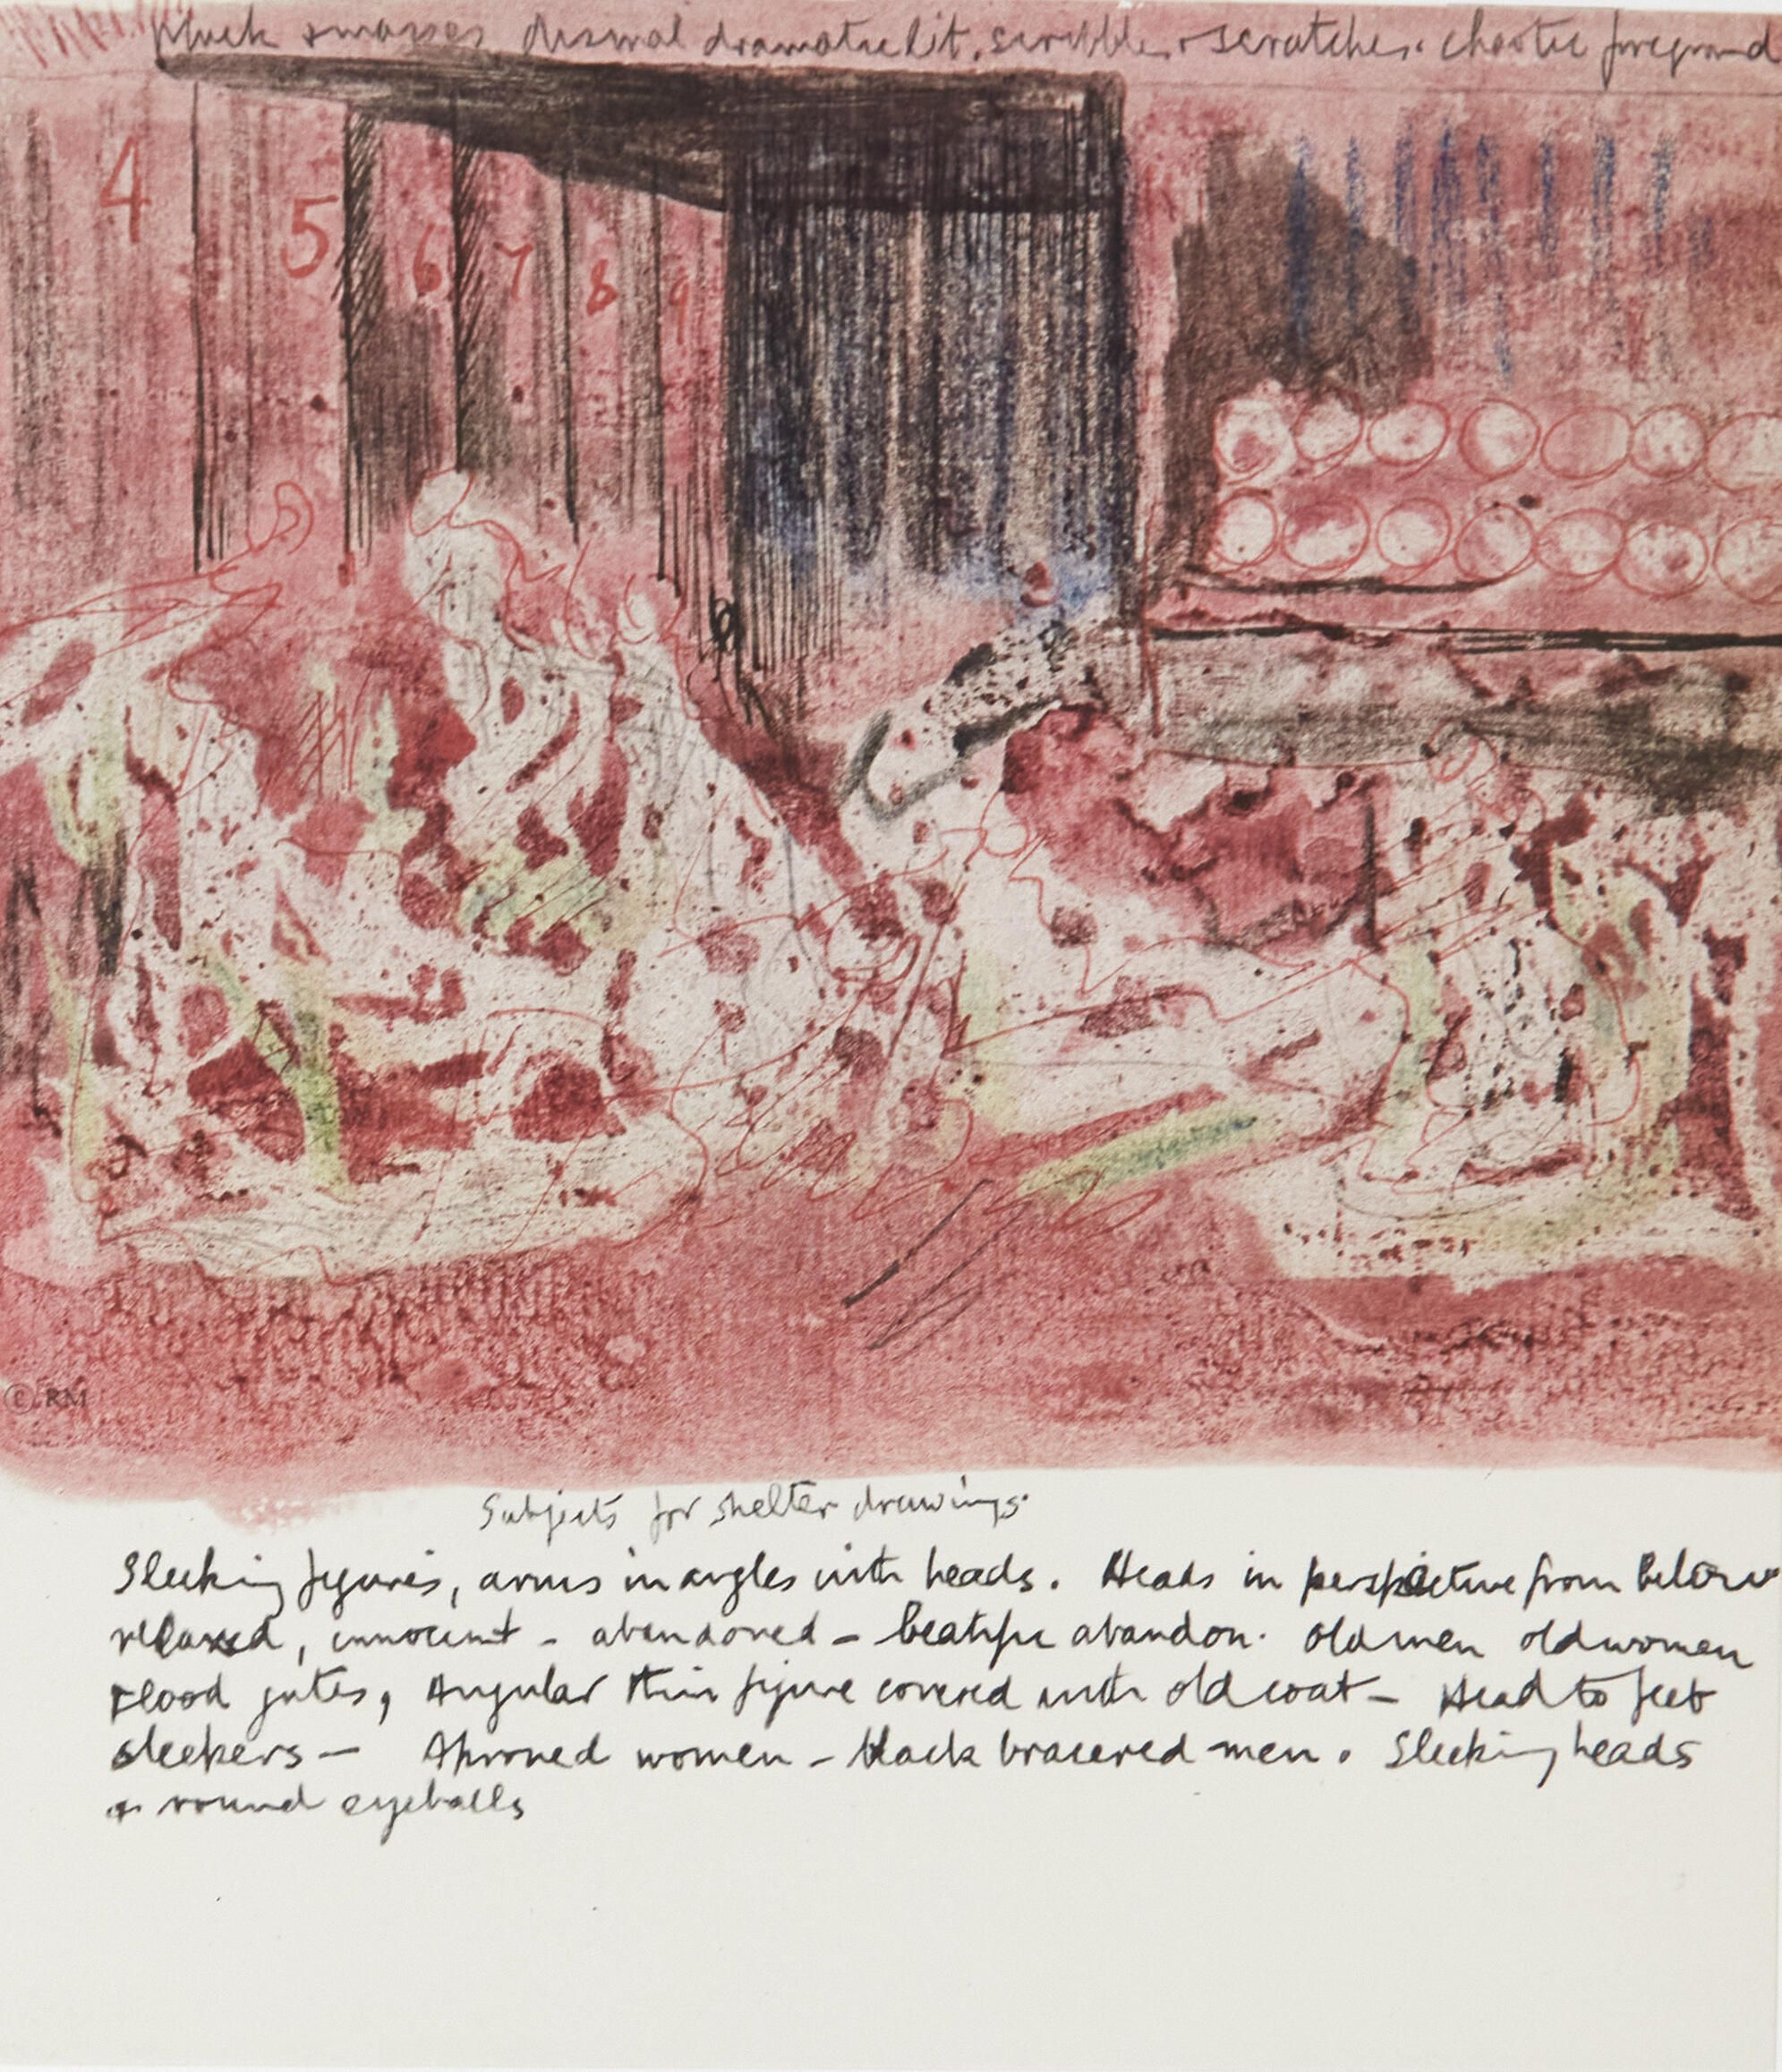 black & masses dismal dramatic lit, scribbles & scratches. chaotic foreground
4 5 6 7 8 9
© RM
Subjects for shelter drawings.
Sleeking figures, arms in angles with heads. Heads in perspective from below
relaxed, innocent - abandoned - beatific abandon. Old men old women
Flood gates, Angular thin figure covered with old coat - Head to feet
sleepers - Throned women - black bracered men. Sleeking heads
& round eyeballs